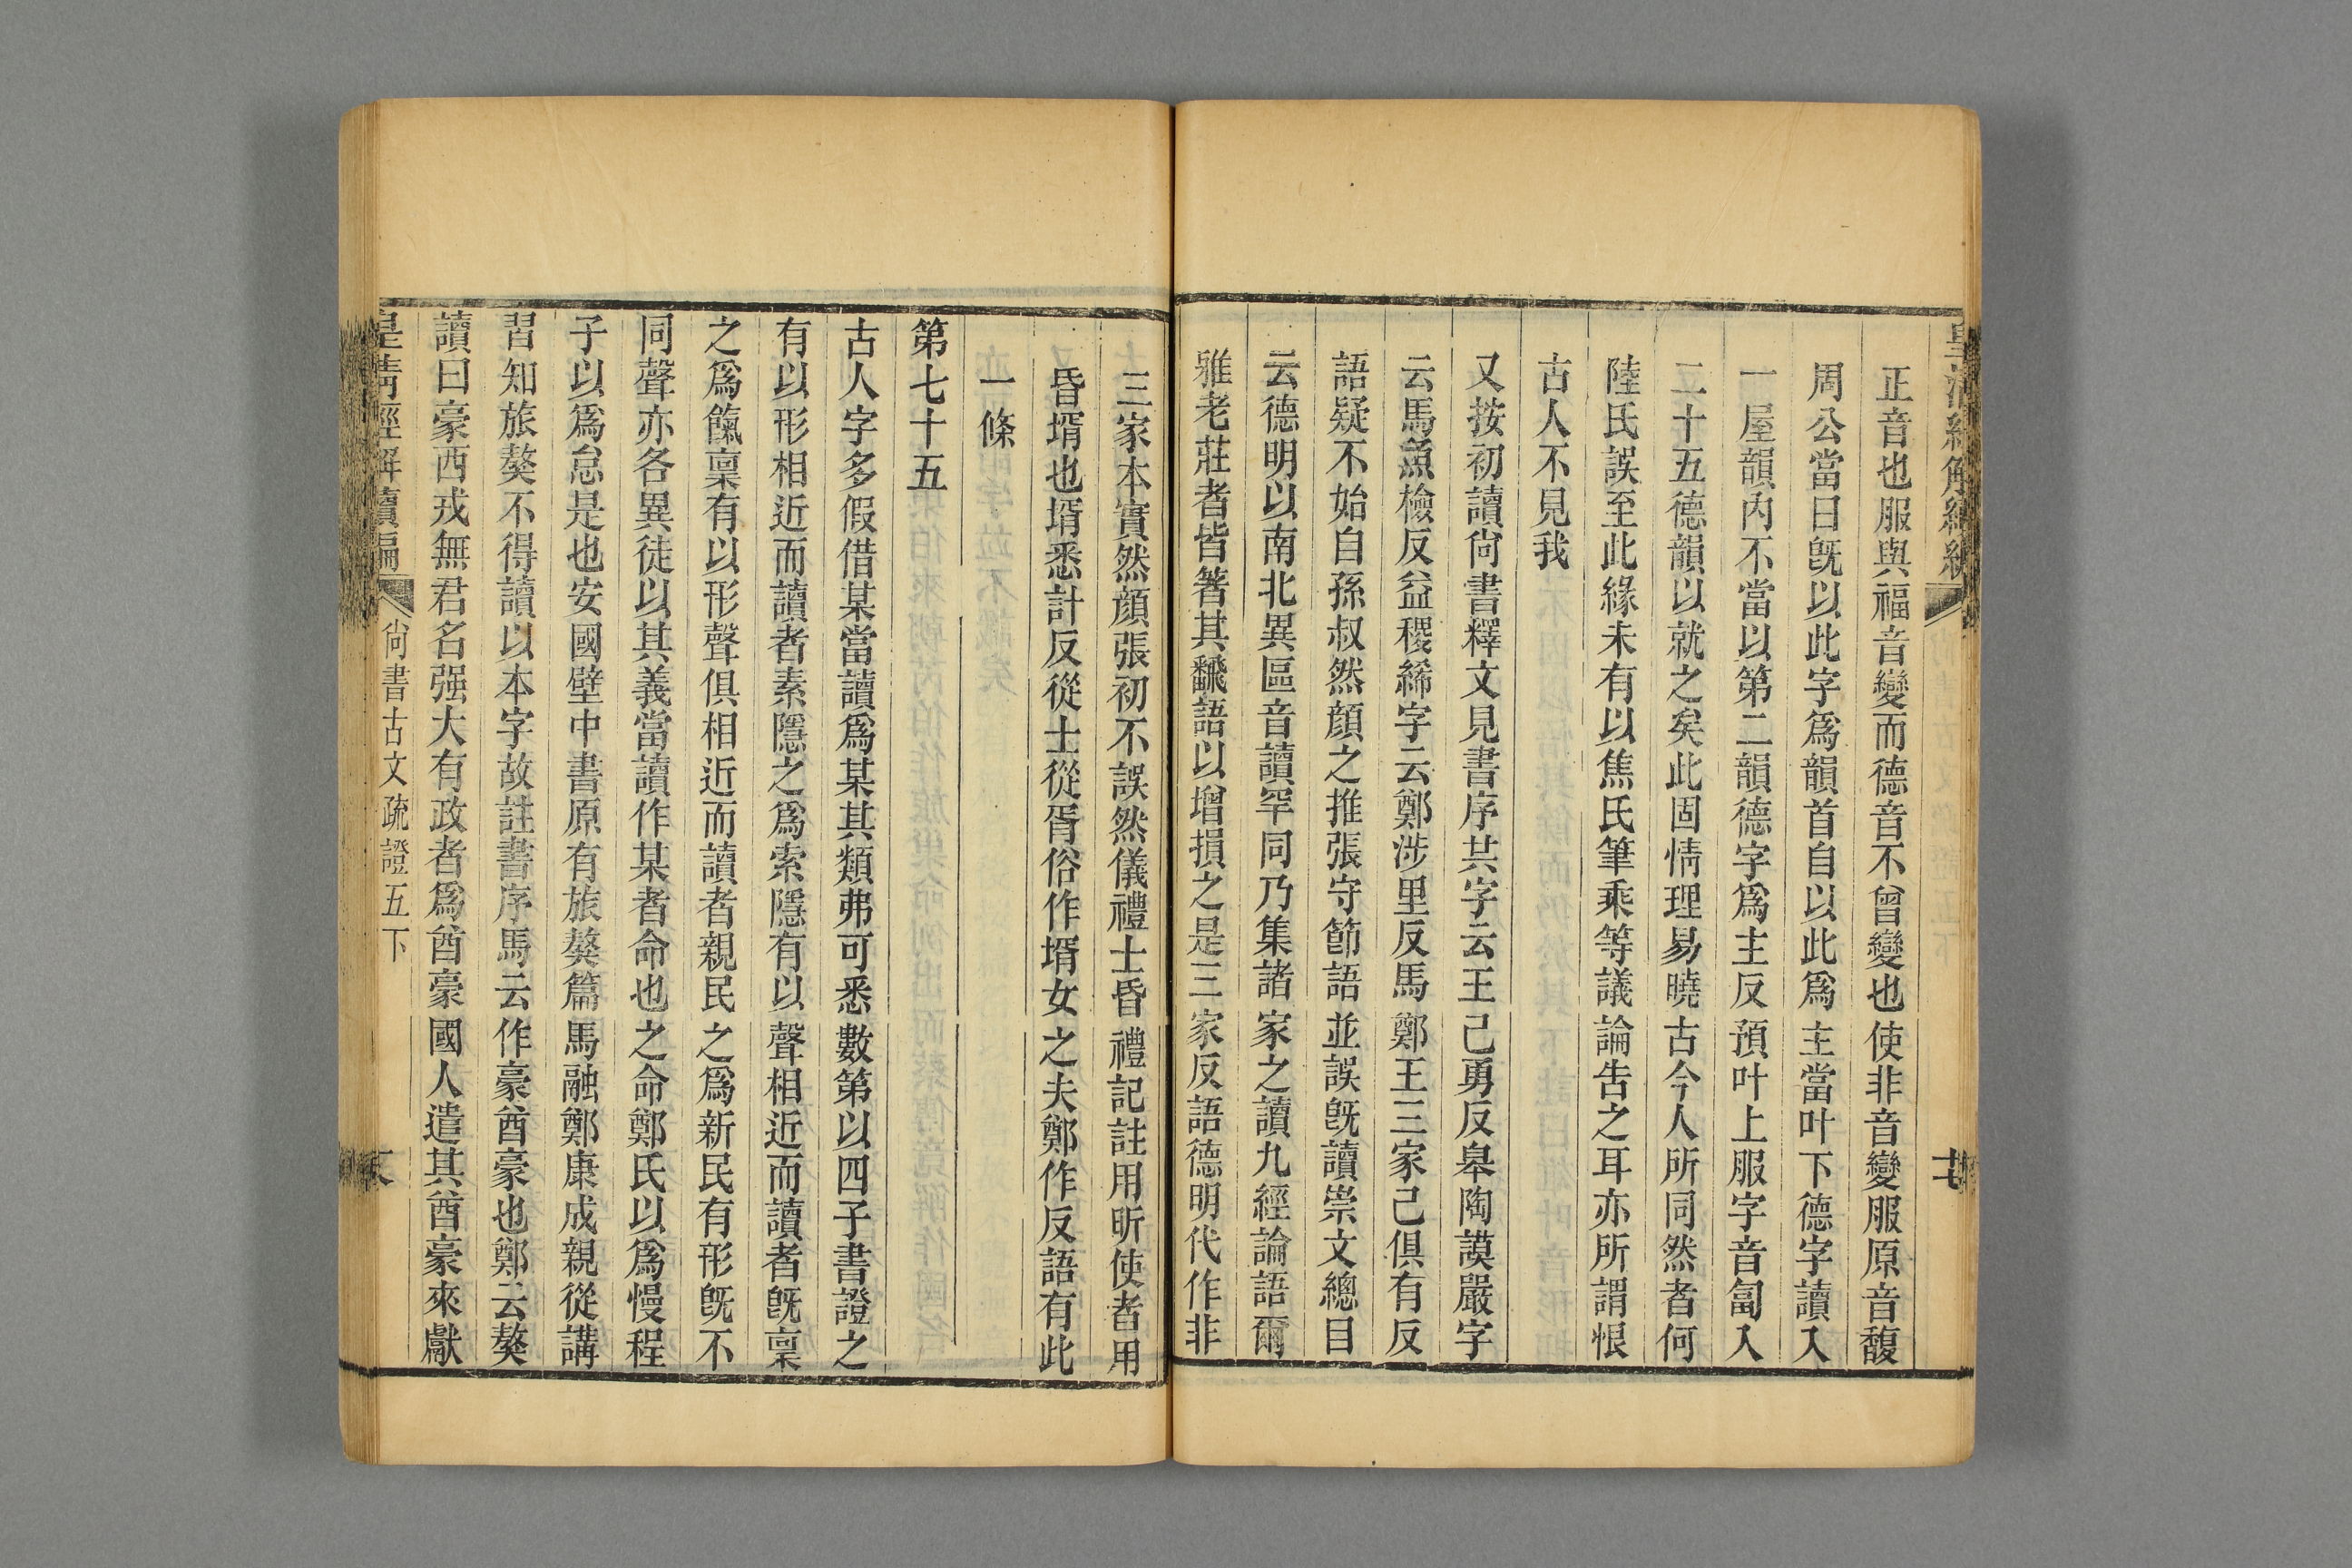 正音也服與福音變而德音不曾變也使非音變服原音馥
周公當日旣以此字爲韻首自以此爲主當叶下德字讀入
一屋韻內不當以第二韻德字爲主反預叶上服字音匐入
二十五德韻以就之矣此固情理易曉古今人所同然者何
陸氏誤至此緣未有以焦氏筆乘等議論告之耳亦所謂恨
古人不見我
又按初讀尙書釋文見書序共字云王己勇反皋陶謨嚴字
云馬魚檢反益稷絺字云鄭涉里反馬鄭王三家己俱有反
語疑不始自孫叔然顏之推張守節語並誤旣讀崇文總目
云德明以南北異區音讀罕同乃集諸家之讀九經論語爾
雅老莊者皆著其飜語以增損之是三家反語德明代作非
三家本實然顏張初不誤然儀禮士昏禮記註用昕使者用
昏壻也壻悉計反從士從胥俗作壻女之夫鄭作反語有此
一條
第七十五
古人字多假借某當讀爲某其類弗可悉數第以四子書證之
有以形相近而讀者素隱之爲索隱有以聲相近而讀者旣稟
之爲餼稟有以形聲俱相近而讀者親民之爲新民有形旣不
同聲亦各異徒以其義當讀作某者命也之命鄭氏以爲慢程
子以爲怠是也安國壁中書原有旅獒篇馬融鄭康成親從講
習知旅獒不得讀以本字故註書序馬云作豪酋豪也鄭云獒
讀曰豪西戎無君名强大有政者爲酋豪國人遣其酋豪來獻
皇淸經解續編 尙書古文疏證五下